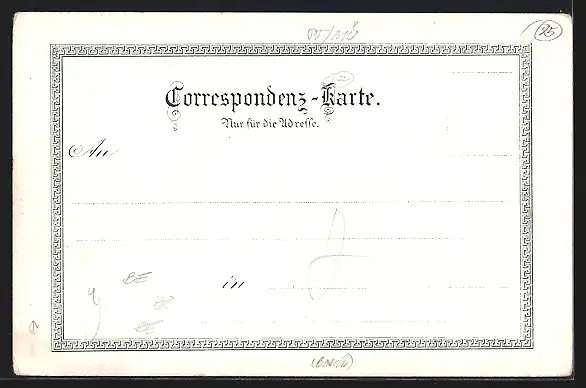 25
Correspondenz-Karte.
2
Nur für die Adresse.
An
in